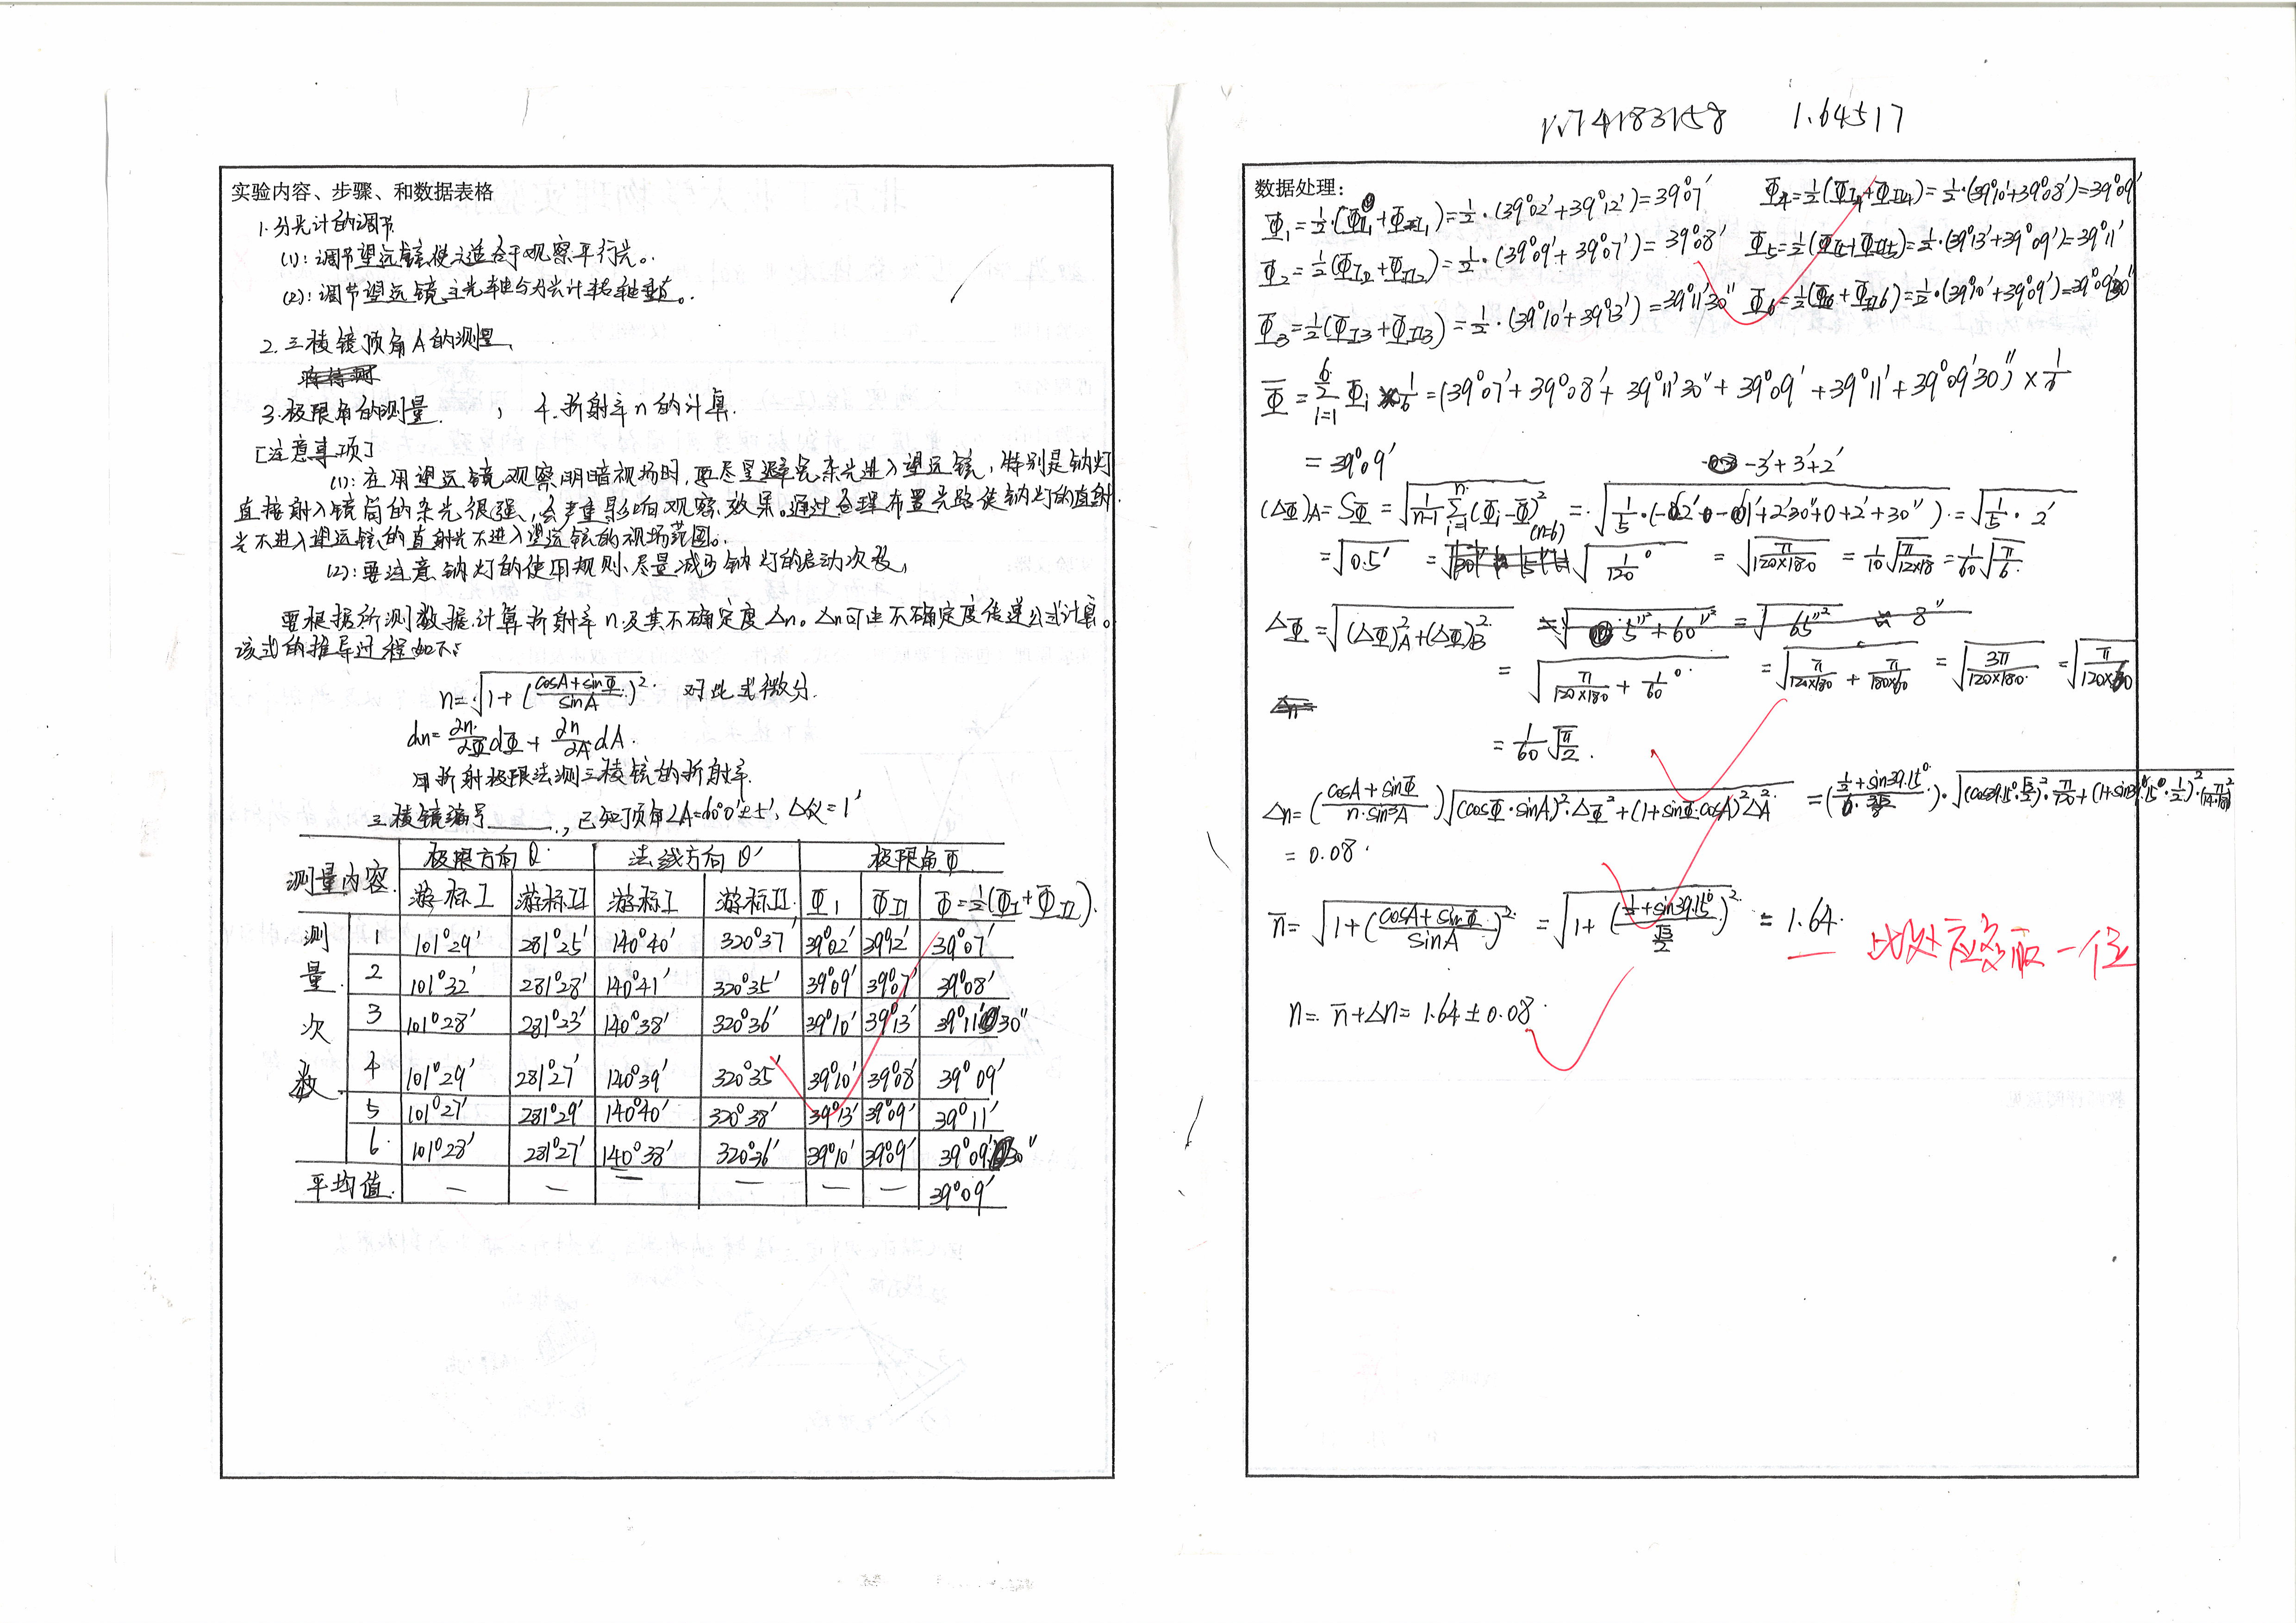 实验内容、步骤、和数据表格
1.分光计的调节
(1):调节望远镜使之适合于观察平行光。
(2):调节望远镜主光轴与分光计转轴垂直。
2.三棱镜顶角A的测量、
3.极限角的测量. , 4.折射率n的计算.
[注意事项]
(1):在用望远镜观察明暗视场时,要尽量避免杂光进入望远镜,特别是钠灯
直接射入镜筒的杂光很强,会严重影响观察效果。通过合理布置光路使钠灯的直射
光不进入望远镜的直射光不进入望远镜的视场范围。
(2):要注意钠灯的使用规则、尽量减少钠灯的启动次数,
要根据所测数据计算折射率n及其不确定度Δn。Δn可由不确定度传递公式计算。
该式的推导过程如下:
n=√1+(cosA+sinΦ/sinA)² 对此式微分.
dn=∂n/∂Φ dΦ+∂n/∂A dA.
用折射极限法测三棱镜的折射率.
三棱镜编号____,已知顶角∠A=60°0'±5',Δ仪=1'
测量内容 极限方向θ 法线方向θ' 极限角Φ
游标I 游标II 游标I 游标II Φ_I Φ_II Φ=½(Φ_I+Φ_II).
测量次数
1 101°29' 281°25' 140°40' 320°37' 39°02' 39°12' 39°07'
2 101°32' 281°28' 140°41' 320°35' 39°09' 39°07' 39°08'
3 101°28' 281°23' 140°38' 320°36' 39°10' 39°13' 39°11'30"
4 101°29' 281°27' 140°39' 320°35' 39°10' 39°08' 39°09'
5 101°27' 281°29' 140°40' 320°38' 39°13' 39°09' 39°11'
6 101°28' 281°27' 140°38' 320°36' 39°10' 39°09' 39°09'30"
平均值 — — — — — — 39°09'
1.64517
数据处理:
Φ₁=½(Φ_I1+Φ_II1)=½·(39°02'+39°12')=39°07'
Φ₂=½(Φ_I2+Φ_II2)=½·(39°09'+39°07')=39°08'
Φ₃=½(Φ_I3+Φ_II3)=½·(39°10'+39°13')=39°11'30"
Φ₄=½(Φ_I4+Φ_II4)=½·(39°10'+39°08')=39°09'
Φ₅=½(Φ_I5+Φ_II5)=½·(39°13'+39°09')=39°11'
Φ₆=½(Φ_I6+Φ_II6)=½·(39°10'+39°09')=39°09'30"
Φ̄=Σ(i=1→6)Φᵢ×1/6=(39°07'+39°08'+39°11'30"+39°09'+39°11'+39°09'30")×1/6
=39°09'
-3'+3'+2'
(ΔΦ)A=S_Φ=√1/(n-1) Σ(i=1→n)(Φᵢ-Φ̄)² (n=6) =√1/5·(-2'-1'+2'30"+0+2'+30")=√1/5·2'
=√0.5' =√1/120° =√π/(120×180) =1/10√π/(12×18)=1/60√π/6
ΔΦ=√(ΔΦ)²A+(ΔΦ)²B
=√π/(120×180)+1/60° =√π/(120×180)+π/(180×60) =√3π/(120×180)
=1/60√π/2.
Δn=(cosA+sinΦ/n·sin³A)√(cosΦ·sinA)²·ΔΦ²+(1+sinΦ·cosA)²Δ²A
=0.08.
n̄=√1+(cosA+sinΦ/sinA)²=√1+(½+sin39.15°/(√3/2))²=1.64.
此处应多取一位
n=n̄+Δn=1.64±0.08.